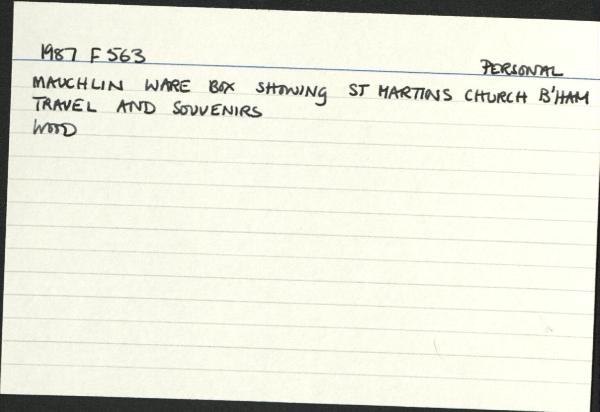 1987 F 563
PERSONAL
MAUCHLIN WARE BOX SHOWING ST MARTINS CHURCH B'HAM
TRAVEL AND SOUVENIRS
WOOD